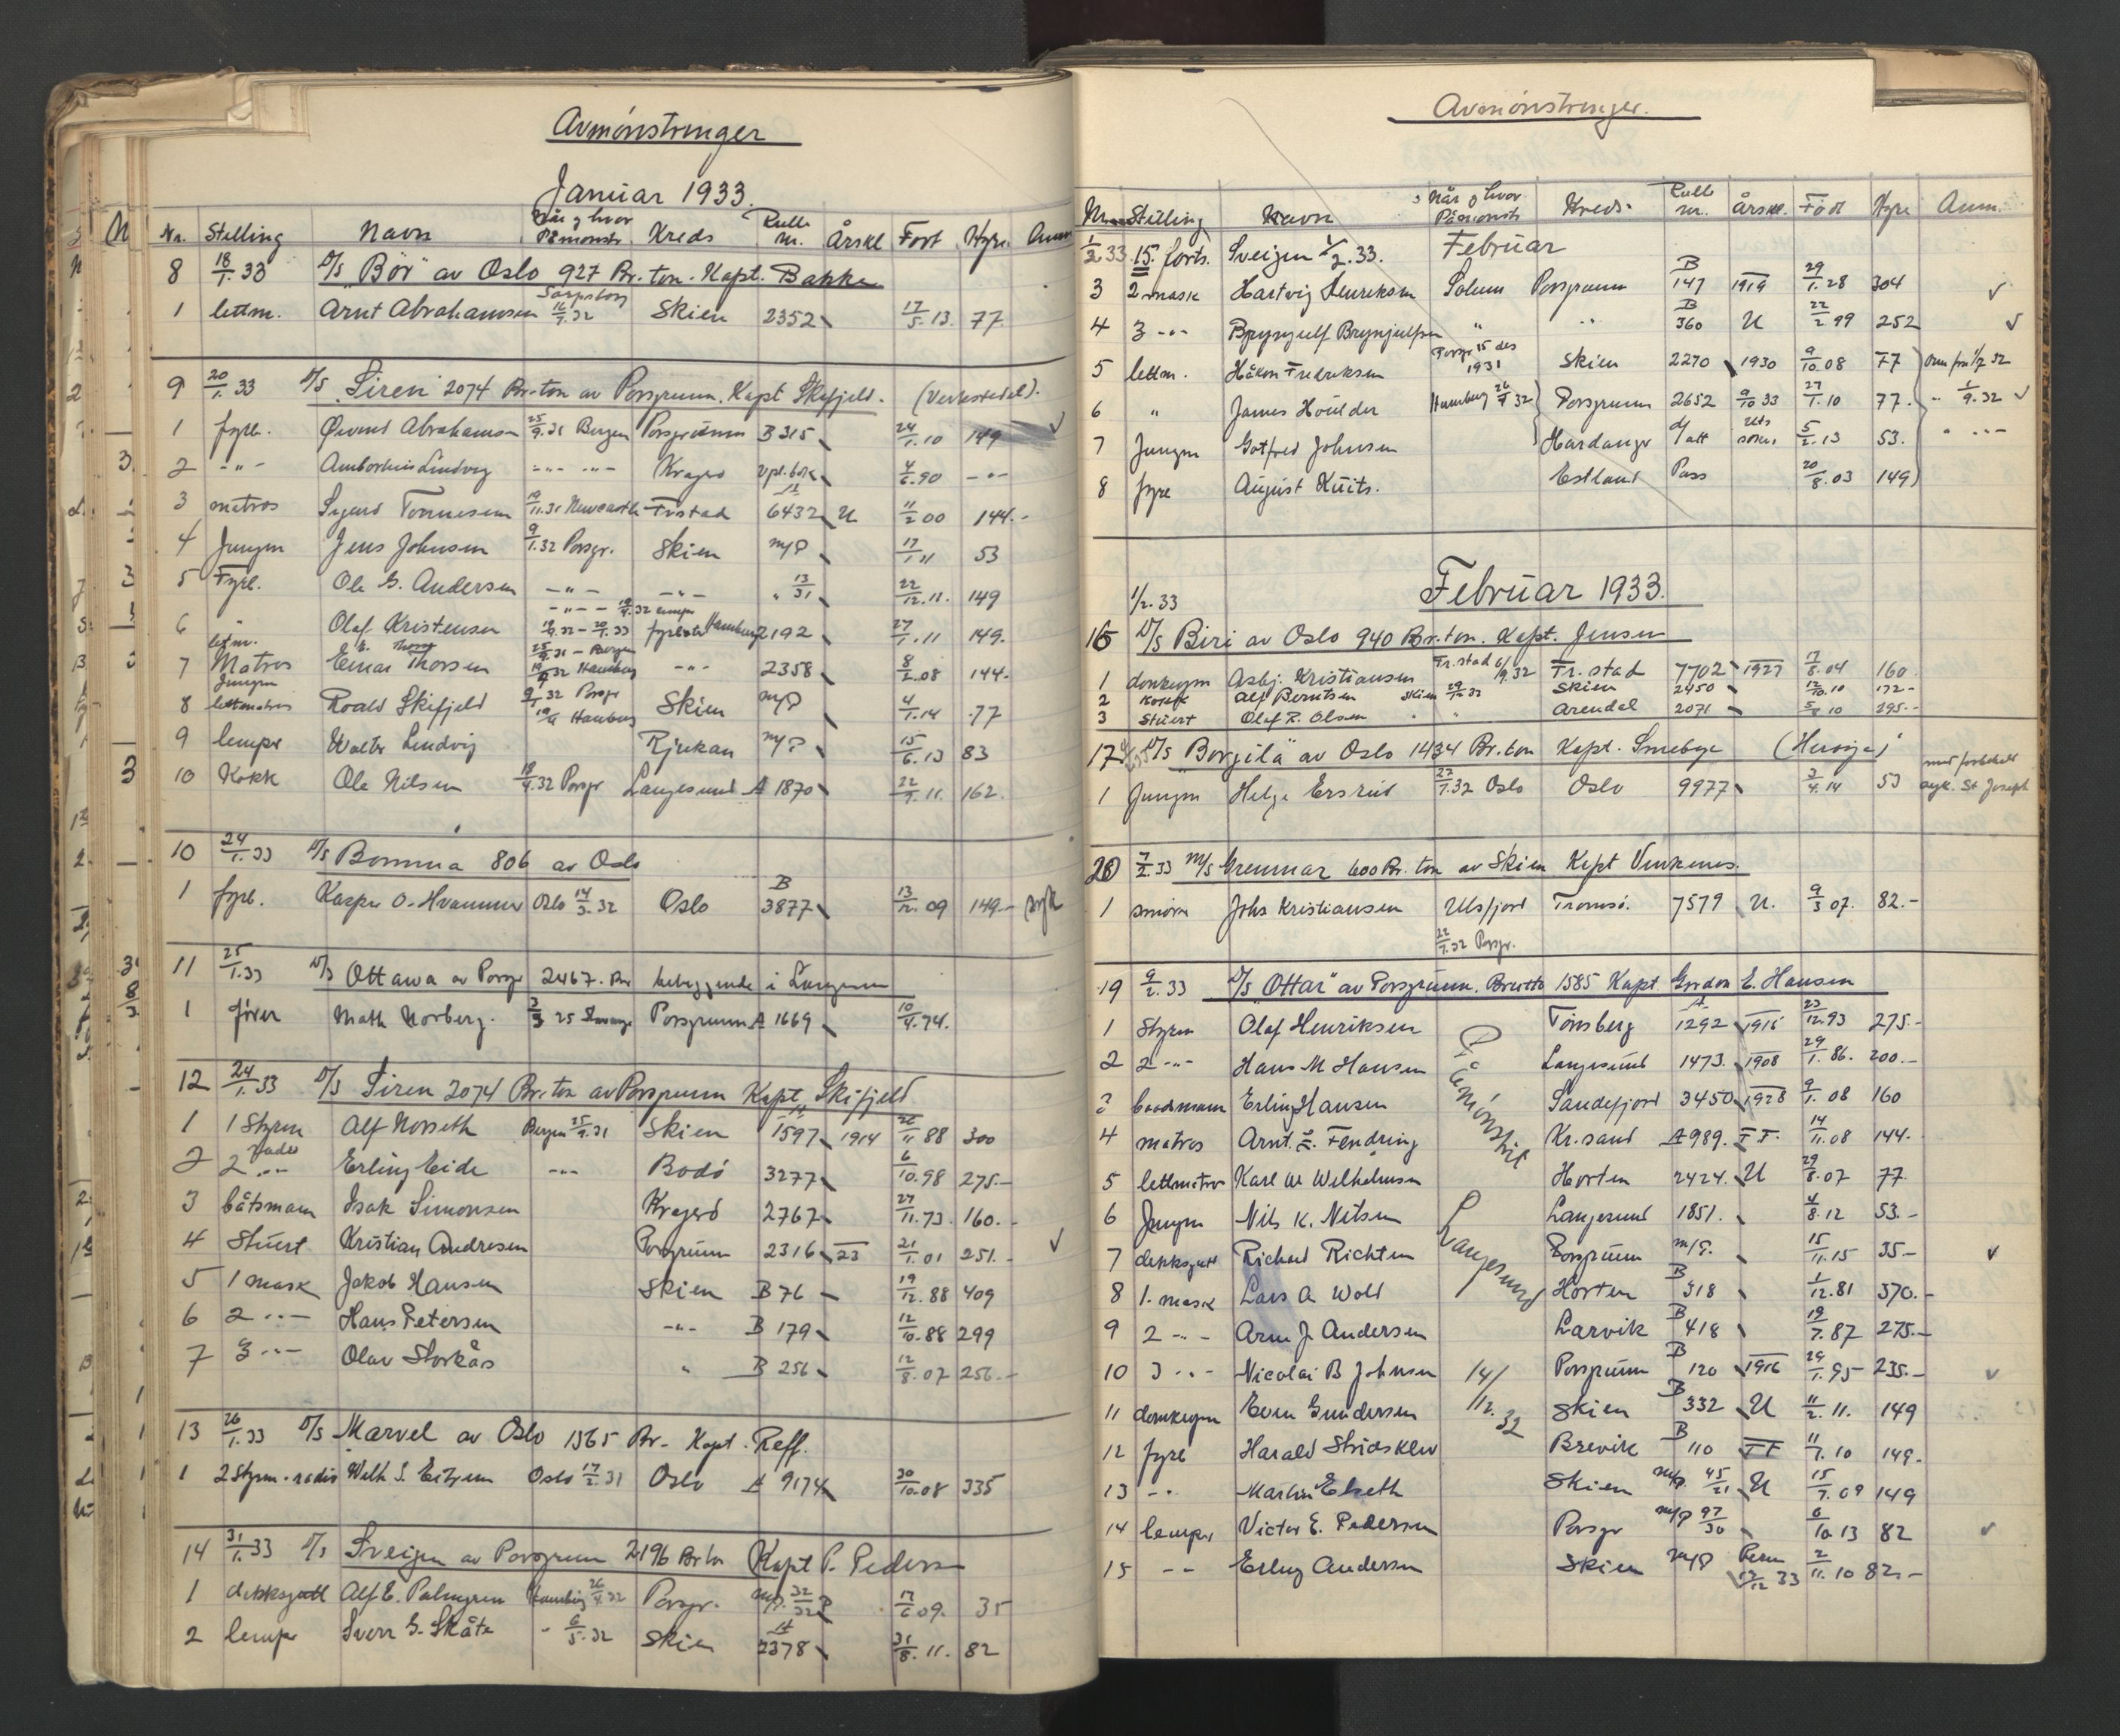 Avmønstringer
Januar 1933.
Nr. Stilling Navn Når & hvor Påmønstr Kreds Rulle nr. Årskl Født Hyre Anm
8 18/1.33 D/S "Bör" av Oslo 927 Br. ton. Kapt. Bakke
1 lettm. Arnt Abrahamsen Sarpsborg 16/9.32 Skien 2352 17/5.13. 77.
9 20/1.33 D/S "Siren" 2074 Br. ton av Porsgrunn. Kapt Skifjeld. (Verkstedet).
1 fyrb. Øivind Abrahamsen 25/9.31 Bergen Porsgrunn B 315 24/1.10 149
2 -"- Lindvig -"- -"- Kragerø 4/6.90 -"-
3 matros Sigurd Tønnesen 19/11.31 Newcastle Frstad A 6432 U 11/2 00 144.-
4 Jungm Jens Johnsen 9/1.32 Porsgr. Skien m/P 17/1.11 53
5 Fyrb. Ole G. Andersen -"- -"- " 13/31 22/12.11. 149
6 " Olaf Kristensen -"- 19/4.32 lemper 19/9.32 - 20/1.33 fyrbøter Hamburg 2192 27/1.11 149.
7 lettm. Matros Einar Thorsen 25/9.31 - Bergen 19/9 32 Hamburg -"- 2358 8/2.08 144.-
8 Jungm lettmatros Roald Skifjeld 9/1 32 Porsgr 19/9 Hamburg Skien m/P 4/1.14 77
9 lemper Walter Lindvig Rjukan m/P 15/6.13 83
10 Kokk Ole Nilsen 18/4.32 Porsgr Langesund A 1870 22/9.11. 162.
10 24/1.33 D/S Bomma 806 av Oslo
1 fyrb. Kasper O. Hvammer Oslo 14/3.32 Oslo B 3877 13/12.09 149.- syk
11 25/1.33 D/S Ottawa av Porsgr 2467. Br. beliggende i Langesund
1 fører Math Norberg. 3/3 25 Stavanger Porsgrunn A 1669 10/4.74.
12 24/1.33 D/S Siren 2074 Br. ton av Porsgrunn Kapt Skifjeld
1 1 Styrm Alf Nosseth Bergen 25/9.31 Skien A 1597 1914 26/11 88 300
2 2 -"- radio Erling Eide -"- Bodö 3277 6/10.98 275.-
3 båtsmann Isak Simonsen Kragerö 2767 27/11.73. 160.-
4 Stuert Kristian Andresen Porsgrunn 2316 23 21/1.01 251.-
5 1 mask Jakob Hansen Skien B 76 19/12.88 409
6 2 -"- Hans Petersen -"- B 179 12/10.88 299
7 3 -"- Olav Storkås " B 256 12/8.07 256.-
13 26/1.33 D/S Marvel av Oslo 1565 Br. Kapt. Reff.
1 2 Styrm.radio Wilh S. Oslo 17/2.31 Oslo A 9174 30/10.08 335
14 31/1.33 D/S Sveigen av Porsgrunn 2196 Br ton Kapt P. Peders
1 dekksgutt Alf E. Palmgren Hamburg 26/9.32 Porsgr. m/P 32/32 17/6 09. 35
2 lemper Sverr G. Skåte - 6/5.32 Skien A 2378 31/8. 11. 82
Avmønstringer.
Nr. Stilling Navn Når & hvor Påmønstr Kreds. Rulle nr. Årskl. Født Hyre Anm.
1/2 33 15. forts. Sveigen 1/2.33. Februar
3 2 mask Hartvig Henriksen Solum Porsgrunn B 147 1919 29/1.28 304
4 3 -"- Brynjulf Brynjulfsen " " B 360 U 22/2 99 252
5 lettm. Håkon Fredriksen Porsgr 15 des 1931 Skien 2270 1930 9/10 08 77
6 " James Houlder Hamburg 26/9 32 Porsgrunn 2652 9/10 33 27/1.10 77. " 1/9.32
7 Jungm Gotfred Johnsen Hardanger 5/2.13 53. " -"-
8 fyrb August Kuits. Estland Pass 20/8.03 149
Februar 1933.
1/2.33
16 D/S Biri av Oslo 940 Br. ton. Kapt. Jensen
1 donkeym Asbj. Kristiansen Fr.stad 6/9.32 Fr.stad 7702 1927 17/8.04 160
2 Kokk Alf Berntsen Skien 29/12 32 Skien 2450 12/10.10 172-
3 Stuert Olaf R. Olsen " " Arendal 2071 5/8 10 295.-
17 D/S "Borgila" av Oslo 1434 Br. ton Kapt. Smebye (Herøya)
1 Jungm Helge Ersrud 22/7.32 Oslo Oslo 9977 3/4.14 53 med forbehold syk. St Joseph
20 7/2.33 M/S Grenmar 600 Br. ton av Skien Kapt Vinkenes.
1 smører Johs Kristiansen Ulsfjord Tromsø. 7579 U. 9/3 07. 82.-
22/7.32 Porsgr.
19 9/2.33 D/S "Ottar" av Porsgrunn. Brutto 1585 Kapt Gordon E. Hansen
1 Styrm Olaf Henriksen Påmønstret Tønsberg A 1292 1915 23/12.93 275.-
2 2 -"- Hans M Hansen Langesund 1473. 1908 29/1.86. 200.-
3 baadsmann Erling Hansen Sandefjord 3450 1928 9/1. 08 160
4 matros Arnt. E. Fendring Kr.sand A 989. T F. 14/11.08 144.
5 lettmatros Karl W Wilhelmsen Horten 2424. U 29/8.07 77.
6 Jungm Nils K. Nilsen Langesund Langesund 1851. 4/8.12 53.-
7 dekksgutt Richard Richten Porsgrunn m/P. 15/11.15 35.-
8 1. mask Lars A Wold Horten B 318 1/12.81 370.-
9 2 -"- Arne J. Andersen Larvik B 418 19/7.87 275.-
10 3 -"- Nicolai B Johnsen 14/11.32 Porsgrunn B 120 1916 29/1.95 235.-
11 donkeym Even Gundersen Skien B 332 U 11/2.11. 149
12 fyrb Harald Stridsklev Brevik B 110 T F 11/7.10 149.
13 -"- Martin Elseth Skien m/P. 45/21 U 15/7.09 149
14 lemper Victor E. Pedersen Porsgr m/P 97/30 6/10 13 82
15 -"- Erling Andersen Skien m/P 2/11. 10 82.-